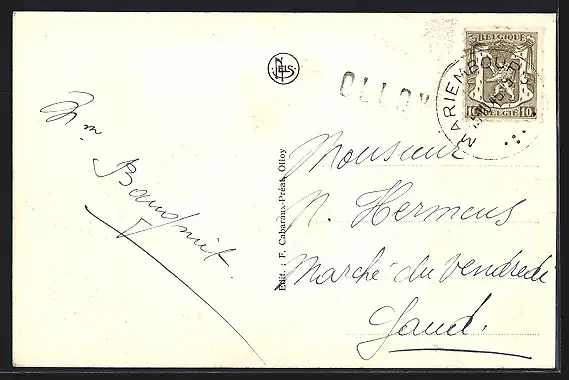 NELS
OLLOY
BELGIQUE
10 BELGIË 10
MARIEMBOURG
Edit. : F. Cabaraux-Préat, Olloy
Monsieur
N. Hermens
Marché du Vendredi
Gand.